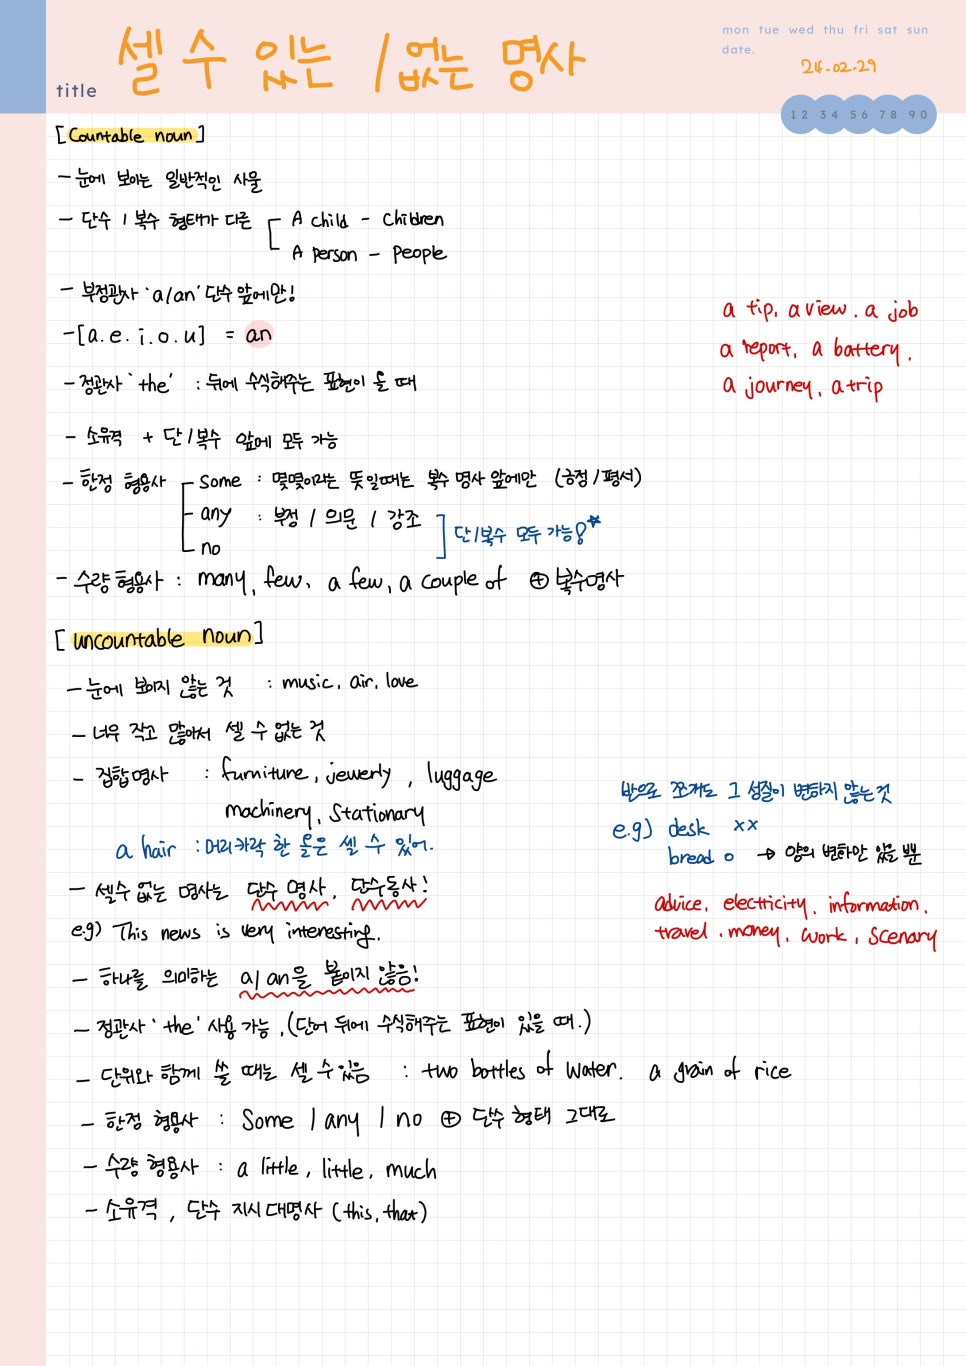 mon tue wed thu fri sat sun
date.
24.02.29
title
셀 수 있는 / 없는 명사
1 2 3 4 5 6 7 8 9 0
[Countable noun]
- 눈에 보이는 일반적인 사물
- 단수 / 복수 형태가 다른
A child - children
A person - people
- 부정관사 'a/an' 단수 앞에만!
- [a. e. i. o. u] = an
a tip, a view, a job
a report, a battery,
a journey, a trip
- 정관사 'the' : 뒤에 수식해주는 표현이 올 때
- 소유격 + 단/복수 앞에 모두 가능
- 한정 형용사
some : 몇몇이라는 뜻일때는 복수 명사 앞에만 (긍정/평서)
any : 부정 / 의문 / 강조
no
단/복수 모두 가능!☆
- 수량 형용사 : many, few, a few, a couple of ⊕ 복수명사
[uncountable noun]
- 눈에 보이지 않는 것 : music, air, love
- 너무 작고 많아서 셀 수 없는 것
- 집합명사 : furniture, jewerly, luggage
machinery, Stationary
a hair : 머리카락 한 올은 셀 수 있어.
반으로 쪼개도 그 성질이 변하지 않는 것
e.g) desk xx
bread o → 양의 변화만 있을 뿐
- 셀수 없는 명사는 단수 명사, 단수동사!
e.g) This news is very interesting.
advice, electricity, information,
travel, money, work, scenary
- 하나를 의미하는 a/an을 붙이지 않음!
- 정관사 'the' 사용 가능, (단어 뒤에 수식해주는 표현이 있을 때.)
- 단위와 함께 쓸 때는 셀 수 있음 : two bottles of water. a grain of rice
- 한정 형용사 : Some / any / no ⊕ 단수 형태 그대로
- 수량 형용사 : a little, little, much
- 소유격, 단수 지시대명사 (this, that)